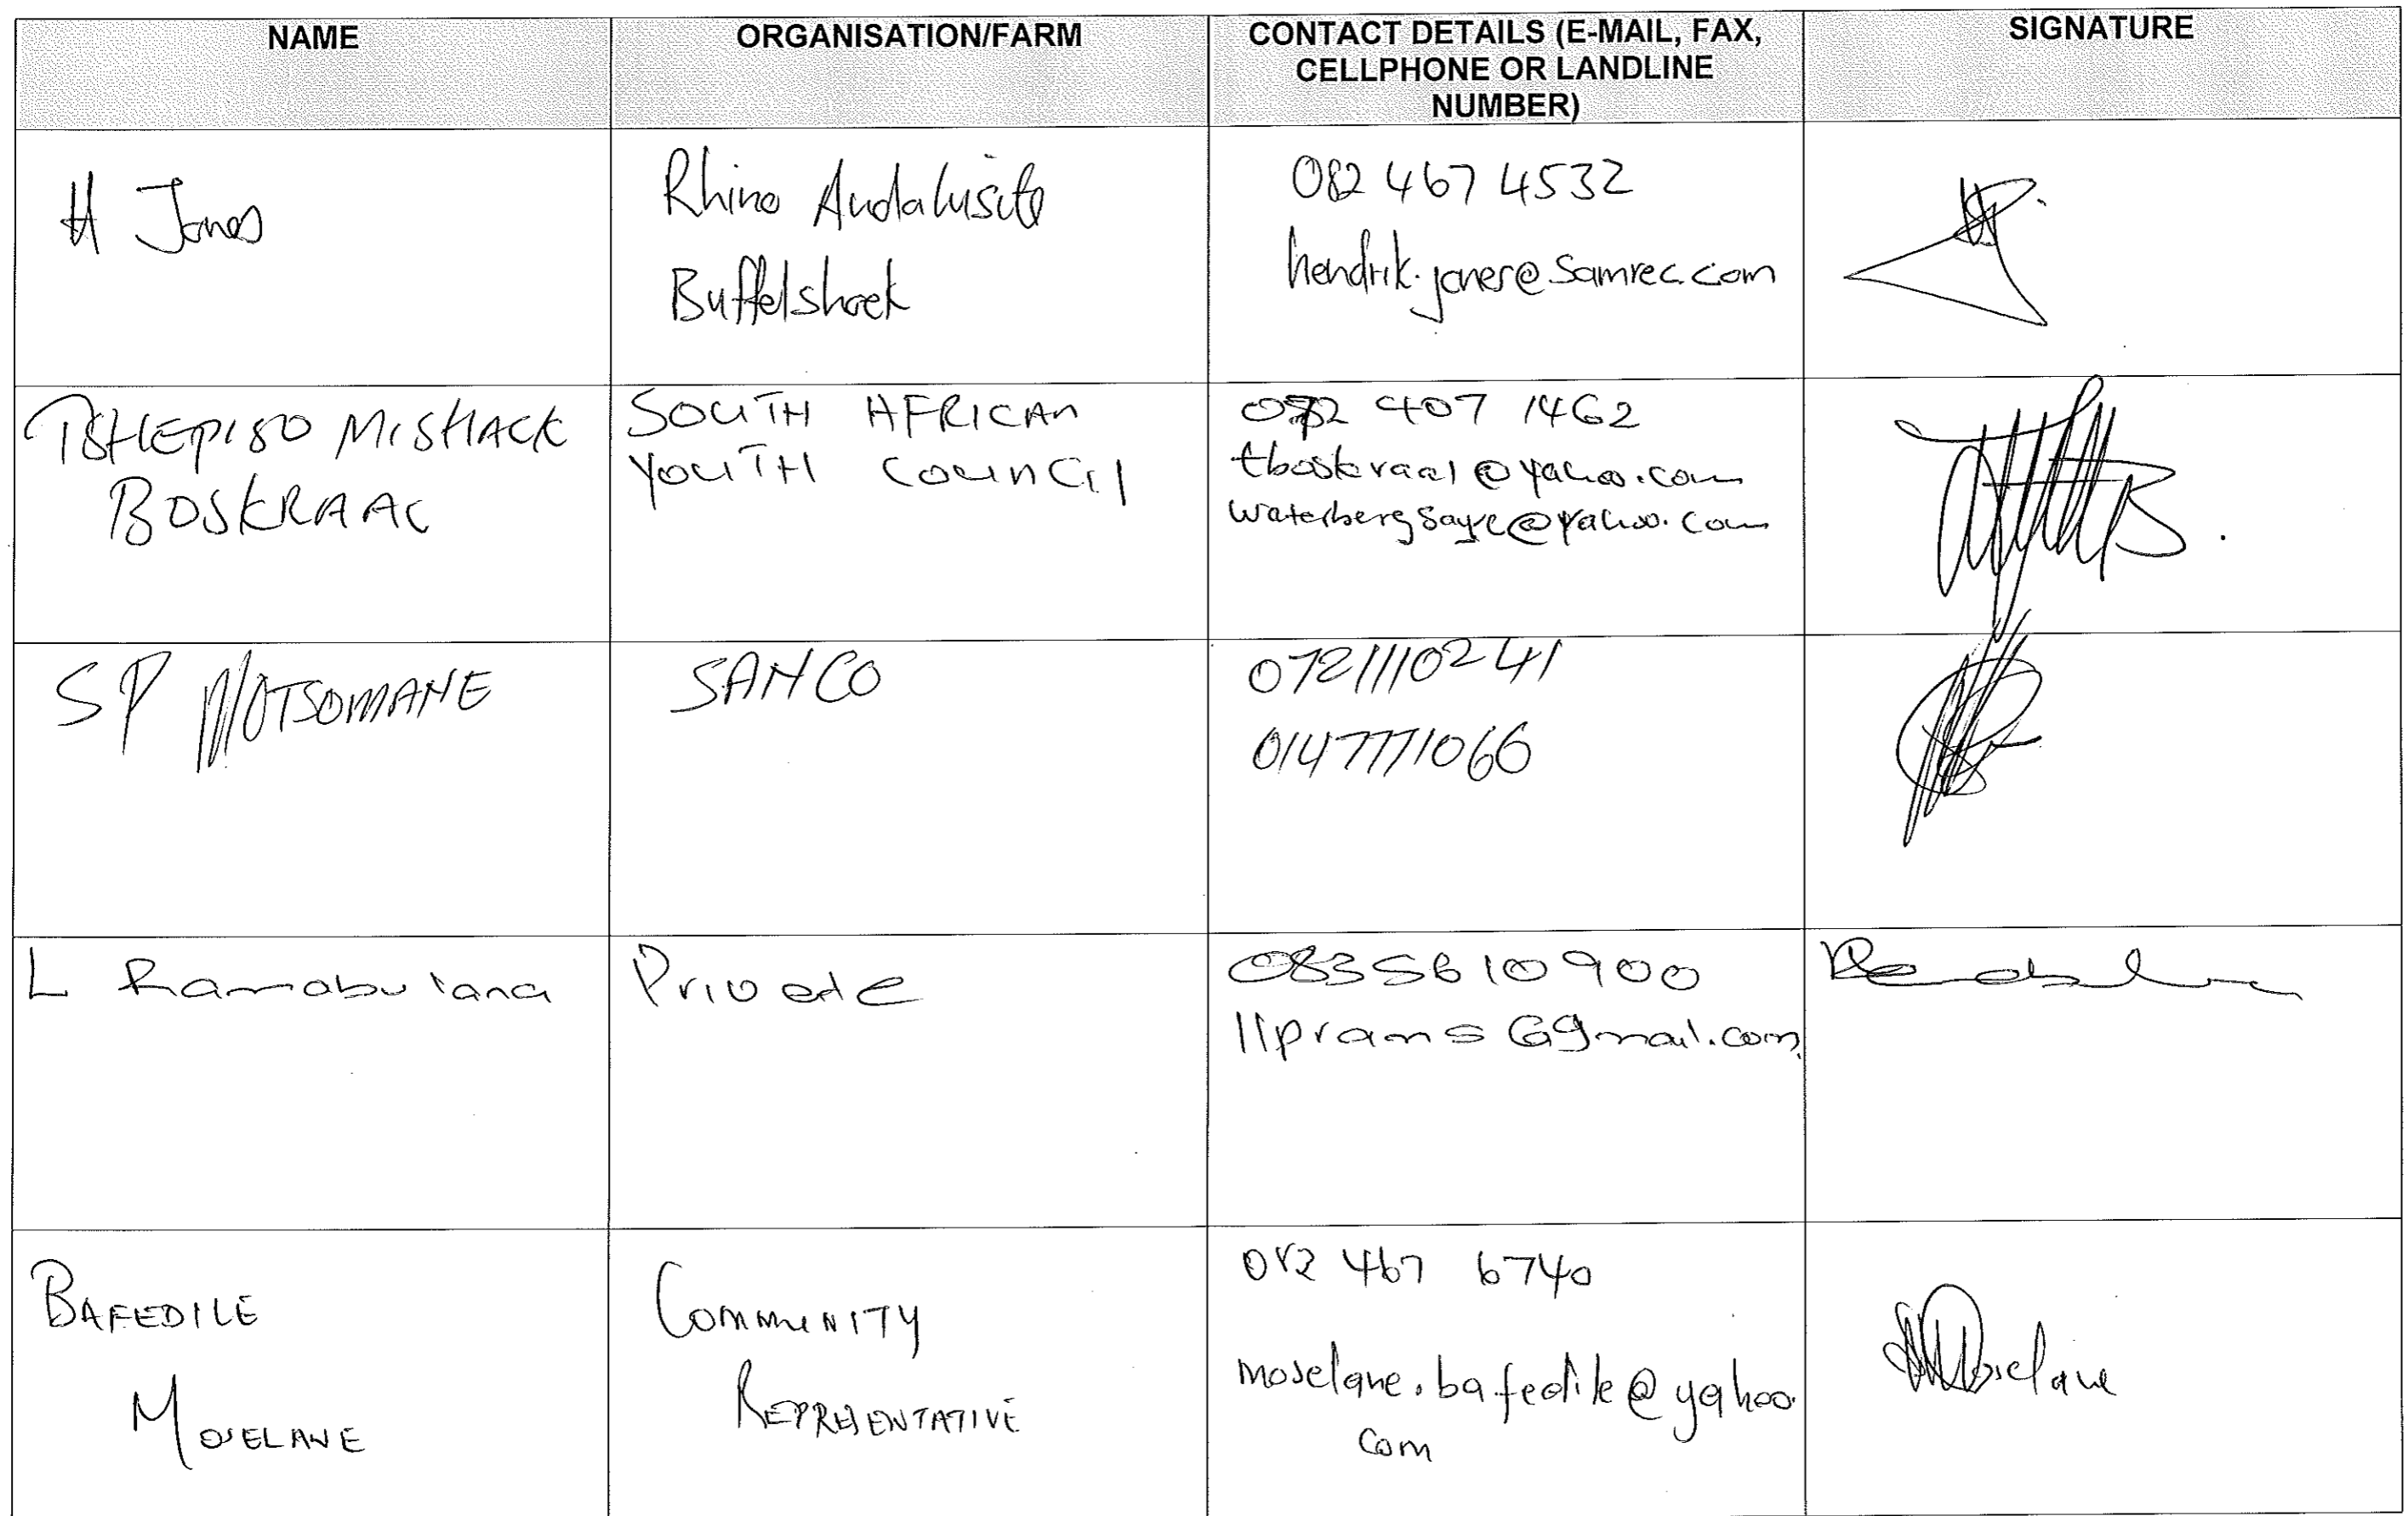 NAME
ORGANISATION/FARM
CONTACT DETAILS (E-MAIL, FAX,
CELLPHONE OR LANDLINE
NUMBER)
SIGNATURE
H Jones
Rhino Andalusite
Buffelshoek
082 467 4532
hendrik.jones@samrec.com
TSHEPISO MISHACK
BOSKRAAL
SOUTH AFRICAN
YOUTH COUNCIL
072 407 1462
tboskraal@yahoo.com
waterbergsayc@yahoo.com
SP MOTSOMANE
SANCO
0721110241
0147771066
L Ramabulana
Private
0835610900
llprams@gmail.com
BAFEDILE
MOSELANE
COMMUNITY
REPRESENTATIVE
082 467 6740
moselane.bafedile@yahoo.
com
Moselane